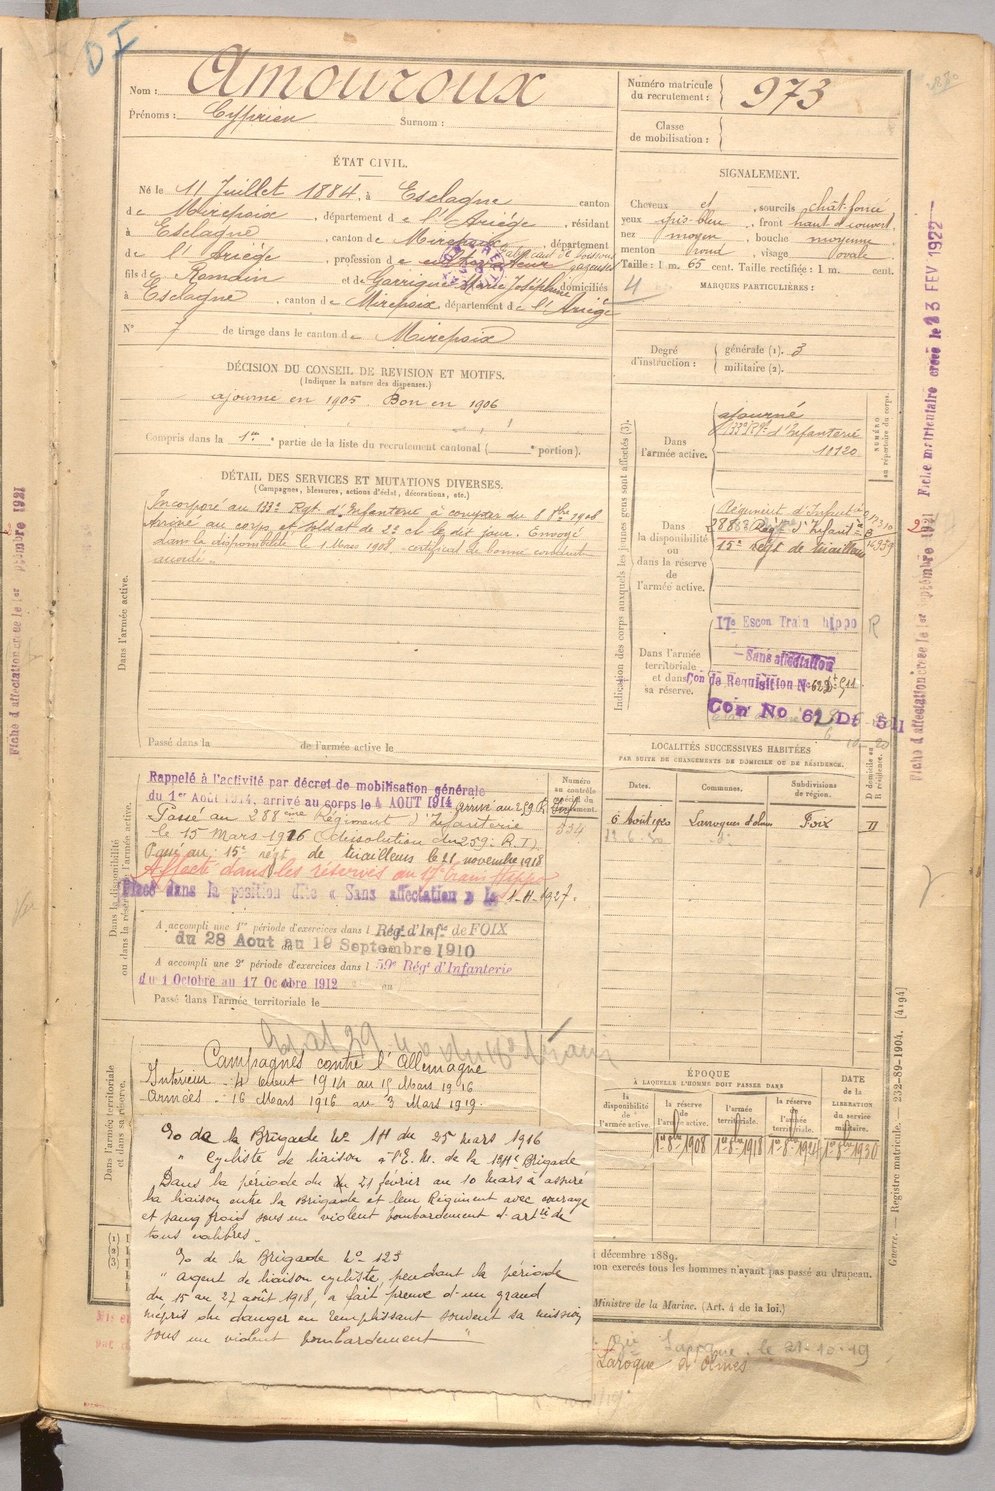 D I
Nom : Amouroux
Prénoms : Cyprien Surnom :
Numéro matricule du recrutement : 973
Classe de mobilisation :
ÉTAT CIVIL.
Né le 11 Juillet 1884, à Esclagne canton
de Mirepoix, département de l'Ariège, résidant
à Esclagne, canton de Mirepoix, département
de l'Ariège, profession de cultivateur
fils de Romain et de Garrigue Marie Joséphine domiciliés
à Esclagne, canton de Mirepoix département de l'Ariège
N° 7 de tirage dans le canton de Mirepoix
SIGNALEMENT.
Cheveux et, sourcils chât. foncé
yeux gris-bleu, front haut découvert.
nez moyen, bouche moyenne
menton rond, visage ovale
Taille : 1 m. 65 cent. Taille rectifiée : 1 m. cent.
MARQUES PARTICULIÈRES :
Degré d'instruction : générale (1). 3
militaire (2).
DÉCISION DU CONSEIL DE REVISION ET MOTIFS.
(Indiquer la nature des dispenses.)
ajourné en 1905. Bon en 1906
Compris dans la 1re partie de la liste du recrutement cantonal ( e portion).
DÉTAIL DES SERVICES ET MUTATIONS DIVERSES.
(Campagnes, blessures, actions d'éclat, décorations, etc.)
Incorporé au 133e Régt d'Infanterie à compter du 8 8bre 1906
Arrivé au corps et soldat de 2e cl le dit jour. Envoyé
dans la disponibilité le 1 Mars 1908, certificat de bonne conduite
accordé.
Dans l'armée active.
Passé dans la de l'armée active le
Indication des corps auxquels les jeunes gens sont affectés (3).
NUMÉRO au répertoire du corps.
Dans l'armée active.
ajourné
133e Rgt d'Infanterie
10120
Dans la disponibilité ou dans la réserve de l'armée active.
Régiment d'Infanterie
288e Régt d'Infanterie
15e régt de tirailleurs
Dans l'armée territoriale et dans sa réserve.
17e Escon Train hippo R
Sans affectation
Con de Requisition N° 62
Con No 62 Dt 511
Dans la disponibilité ou dans la réserve de l'armée active.
Numéro au contrôle spécial du recrutement.
334
Rappelé à l'activité par décret de mobilisation générale
du 1er Août 1914, arrivé au corps le 4 AOUT 1914 arrivé au 259
Passé au 288ème Régiment d'Infanterie
le 15 Mars 1916 (dissolution du 259e R.I)
Passé au 15e régt de tirailleurs le 21 novembre 1918
Affecté dans les réserves au 17e train hippo
Placé dans la position dite « Sans affectation » le 1-11-1927.
A accompli une 1re période d'exercices dans l Rég. d'Infie de FOIX
du 28 Aout au 19 Septembre 1910
A accompli une 2e période d'exercices dans l 59e Régt d'Infanterie
du 1 Octobre au 17 Octobre 1912 au
Passé dans l'armée territoriale le
LOCALITÉS SUCCESSIVES HABITÉES
PAR SUITE DE CHANGEMENTS DE DOMICILE OU DE RÉSIDENCE.
Dates. Communes. Subdivisions de région. D domicile ou R résidence.
6 Août 1920 Laroques d'olmes Foix D
Dans l'armée territoriale et dans sa réserve.
Campagnes contre l'Allemagne
Intérieur : 4 Août 1914 au 15 Mars 1916
Armées : 16 Mars 1916 au 3 Mars 1919.
ÉPOQUE
À LAQUELLE L'HOMME DOIT PASSER DANS
la disponibilité de l'armée active. la réserve de l'armée active. l'armée territoriale. la réserve de l'armée territoriale.
DATE de la LIBÉRATION du service militaire.
1er 8bre 1908 1er 8bre 1918 1er 8bre 1924 1er 8bre 1930
O de la Brigade N° 114 du 25 Mars 1916
" Cycliste de liaison à l'E. M. de la 134e Brigade
Dans la période du 21 février au 10 mars a assuré
la liaison entre la Brigade et leur Régiment avec courage
et sang froid sous un violent bombardement d'artie de
tous calibres.
O de la Brigade N° 123
" agent de liaison cycliste, pendant la période
du 15 au 27 août 1918, a fait preuve d'un grand
mépris du danger en remplissant souvent sa mission
sous un violent bombardement "
décembre 1889.
non exercés tous les hommes n'ayant pas passé au drapeau.
Ministre de la Marine. (Art. 4 de la loi.)
le 21-10-19
Laroque d'Olmes
Guerre. — Registre matricule. — 232-89-1904. [4194]
Fiche d'affectation créée le 1er septembre 1921 Fiche matriculaire créée le 23 FEV 1922